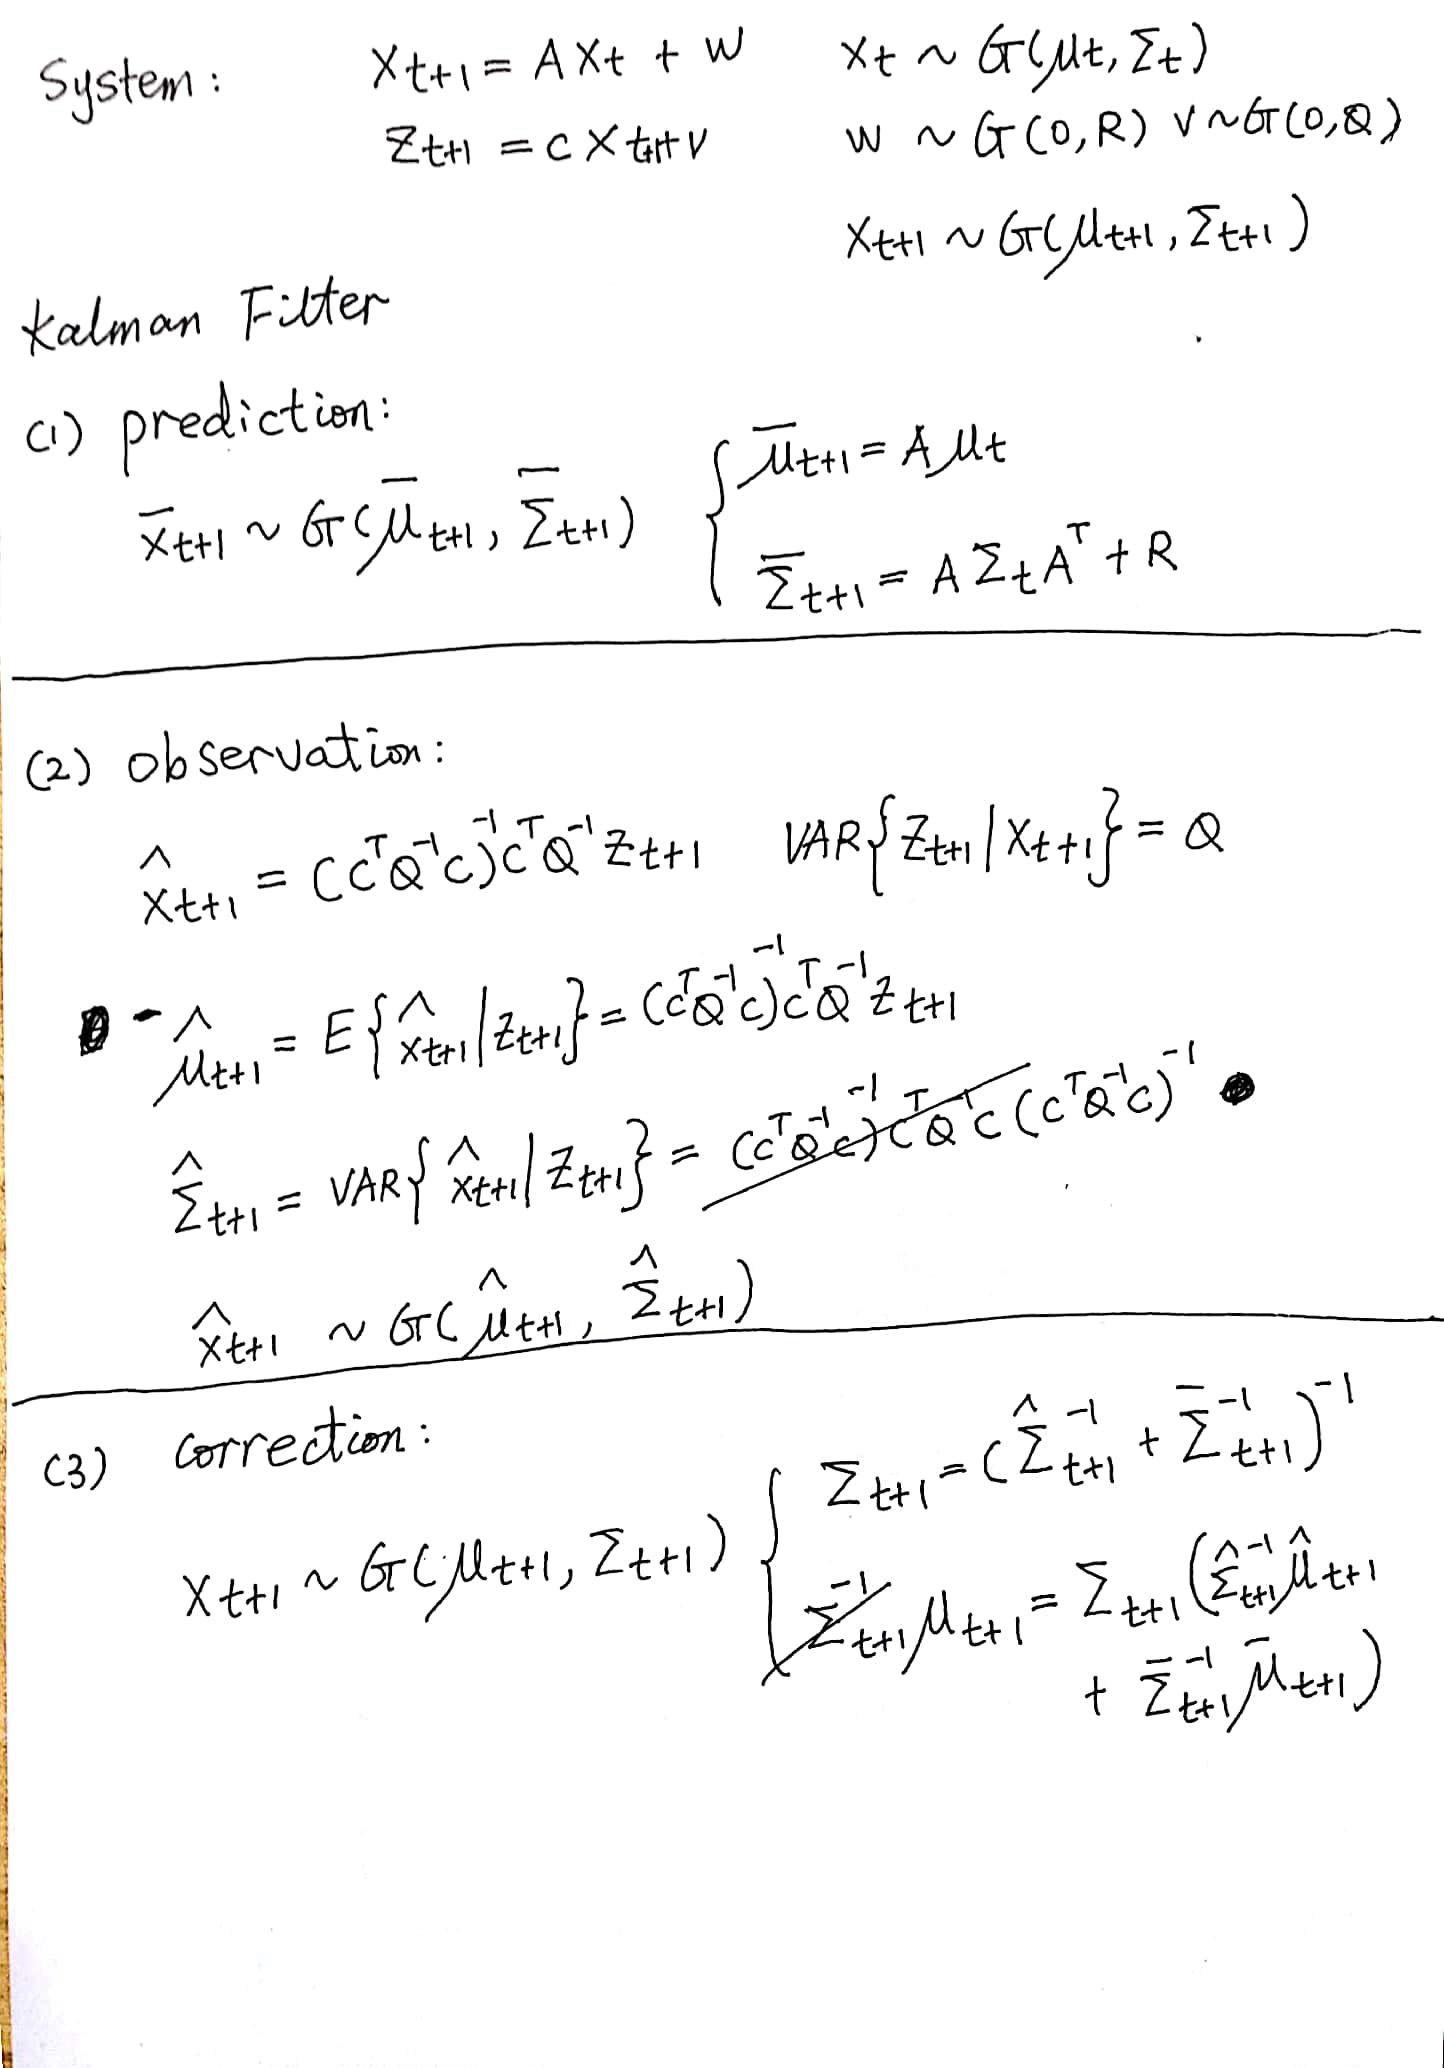 System: Xt+1 = A Xt + W    Xt ~ G(μt, Σt)
Zt+1 = C Xt+1 + V    W ~ G(0, R) V ~ G(0, Q)
Xt+1 ~ G(μt+1, Σt+1)
Kalman Filter
(1) prediction:
X̄t+1 ~ G(μ̄t+1, Σ̄t+1) { μ̄t+1 = A μt
Σ̄t+1 = A Σt Aᵀ + R
(2) observation:
X̂t+1 = (CᵀQ⁻¹C)⁻¹CᵀQ⁻¹Zt+1    VAR{Zt+1|Xt+1} = Q
μ̂t+1 = E{X̂t+1|Zt+1} = (CᵀQ⁻¹C)⁻¹CᵀQ⁻¹Zt+1
Σ̂t+1 = VAR{X̂t+1|Zt+1} = (CᵀQ⁻¹C)⁻¹CᵀQ⁻¹C(CᵀQ⁻¹C)⁻¹
X̂t+1 ~ G(μ̂t+1, Σ̂t+1)
(3) Correction:
Σt+1 = (Σ̂⁻¹t+1 + Σ̄⁻¹t+1)⁻¹
Xt+1 ~ G(μt+1, Σt+1) { Σ⁻¹t+1 μt+1 = Σt+1(Σ̂⁻¹t+1 μ̂t+1
+ Σ̄⁻¹t+1 μ̄t+1)